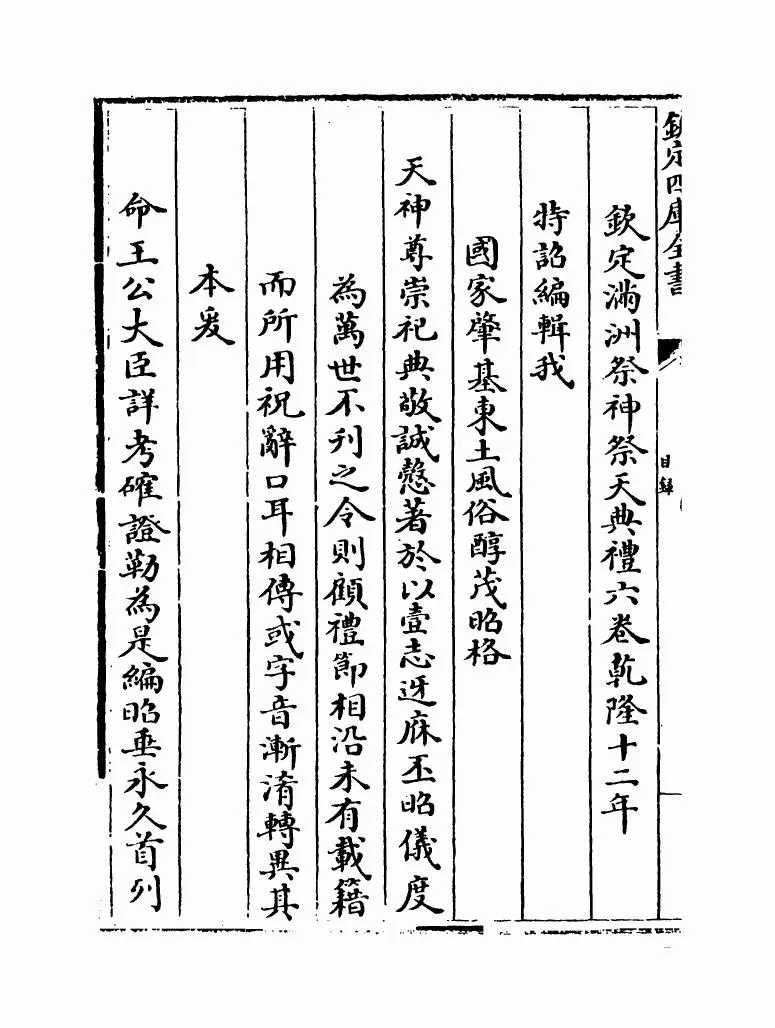 欽定四庫全書
目錄
欽定滿洲祭神祭天典禮六卷乾隆十二年
特詔編輯我
國家肇基東土風俗醇茂昭格
天神尊崇祀典敬誠慤著於以壹志迓庥丕昭儀度
為萬世不刋之令則顧禮節相沿未有載籍
而所用祝辭口耳相傳或字音漸淆轉異其
本爰
命王公大臣詳考確證勒為是編昭垂永久首列